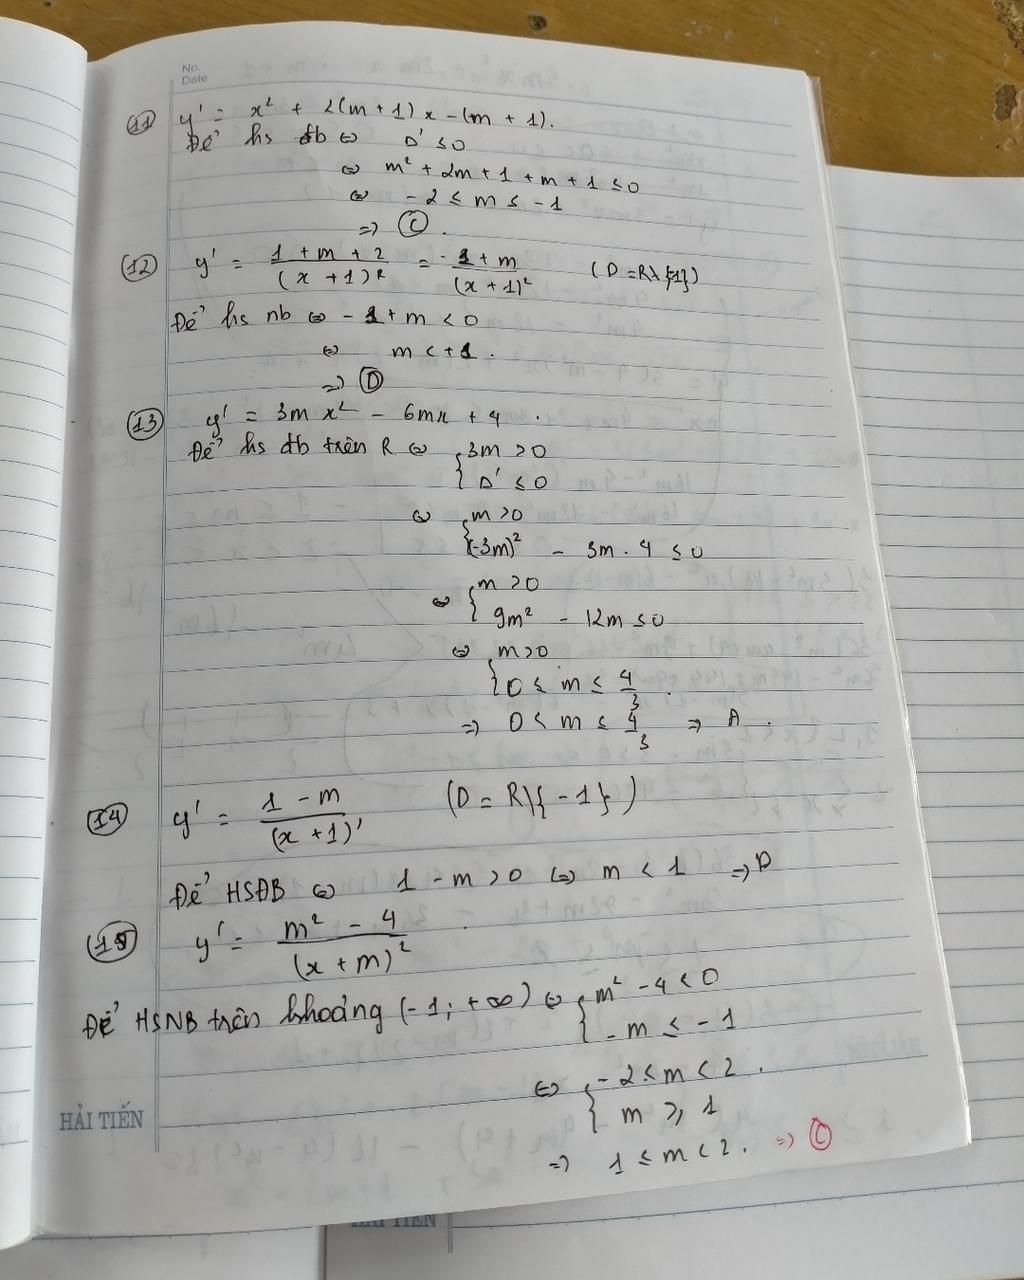 No.
Date
11 y' = x² + 2(m+1)x - (m + 1).
Để hs đb ⇔ Δ' ≤ 0
⇔ m² + 2m + 1 + m + 1 ≤ 0
⇔ -2 ≤ m ≤ -1
=> C.
12 y' = (1 + m + 2)/(x + 1)² = (-1 + m)/(x + 1)² (D = R\{1})
Để hs nb ⇔ -1 + m < 0
⇔ m < +1.
=> D
13 y' = 3m x² - 6mx + 4.
Để hs đb trên R ⇔ { 3m > 0
{ Δ' ≤ 0
⇔ { m > 0
{ (-3m)² - 3m . 4 ≤ 0
⇔ { m > 0
{ 9m² - 12m ≤ 0
⇔ { m > 0
{ 0 ≤ m ≤ 4/3.
=> 0 < m ≤ 4/3 => A.
14 y' = (1 - m)/(x + 1)' (D = R\{-1})
Để HSĐB ⇔ 1 - m > 0 ⇔ m < 1 => D
15 y' = (m² - 4)/(x + m)².
Để HSNB trên khoảng (-1; +∞) ⇔ { m² - 4 < 0
{ -m ≤ -1
⇔ { -2 < m < 2.
{ m ≥ 1
=> 1 ≤ m < 2. => C
HẢI TIẾN
HẢI TIẾN